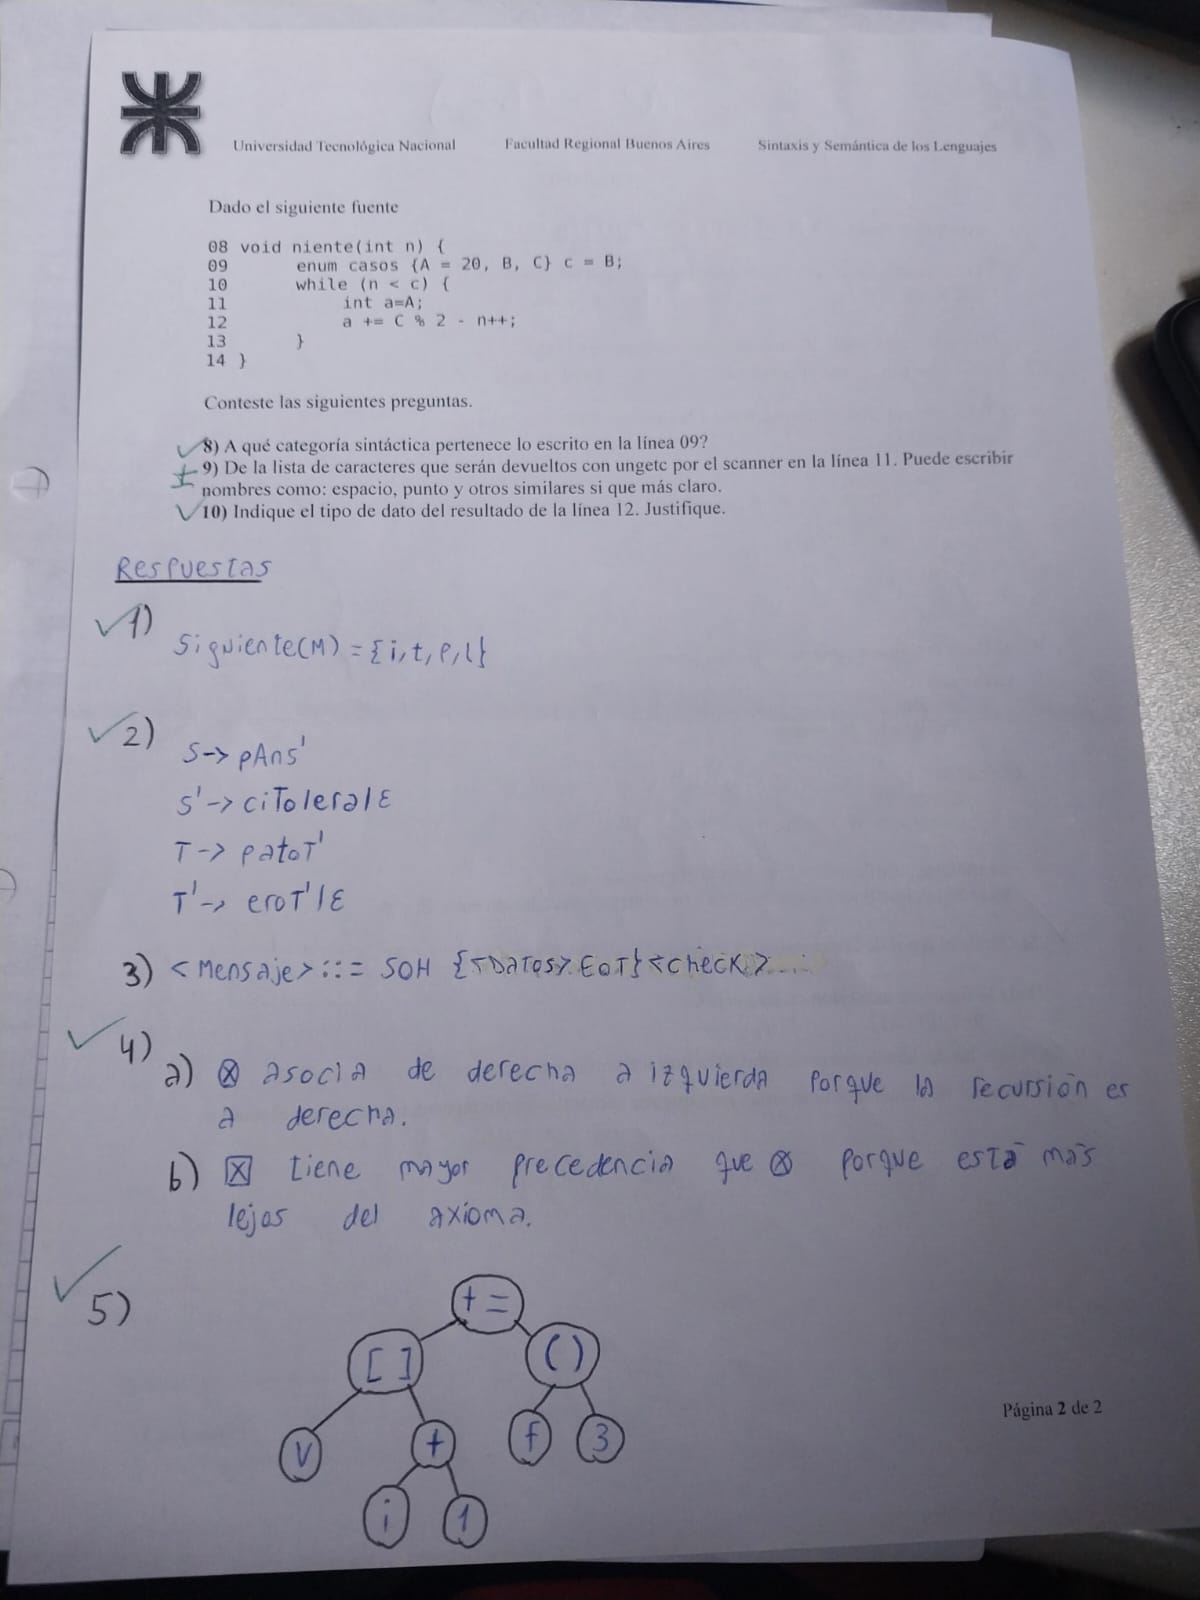 Universidad Tecnológica Nacional Facultad Regional Buenos Aires Sintaxis y Semántica de los Lenguajes
Dado el siguiente fuente
08 void niente(int n) {
09 enum casos {A = 20, B, C} c = B;
10 while (n < c) {
11 int a=A;
12 a += C % 2 - n++;
13 }
14 }
Conteste las siguientes preguntas.
8) A qué categoría sintáctica pertenece lo escrito en la línea 09?
9) De la lista de caracteres que serán devueltos con ungetc por el scanner en la línea 11. Puede escribir
nombres como: espacio, punto y otros similares si que más claro.
10) Indique el tipo de dato del resultado de la línea 12. Justifique.
Respuestas
1)
Siguiente(M) = {i, t, p, l}
2)
S -> pAns'
S' -> ciTolera|ε
T -> patoT'
T' -> eroT'|ε
3) <Mensaje> ::= SOH {<Datos> EOT} <check> ...
4)
a) ⊗ asocia de derecha a izquierda porque la recursión es
a derecha.
b) ☒ tiene mayor precedencia que ⊗ porque está más
lejos del axioma.
5)
+=
[ ] ( )
v + f 3
i 1
Página 2 de 2